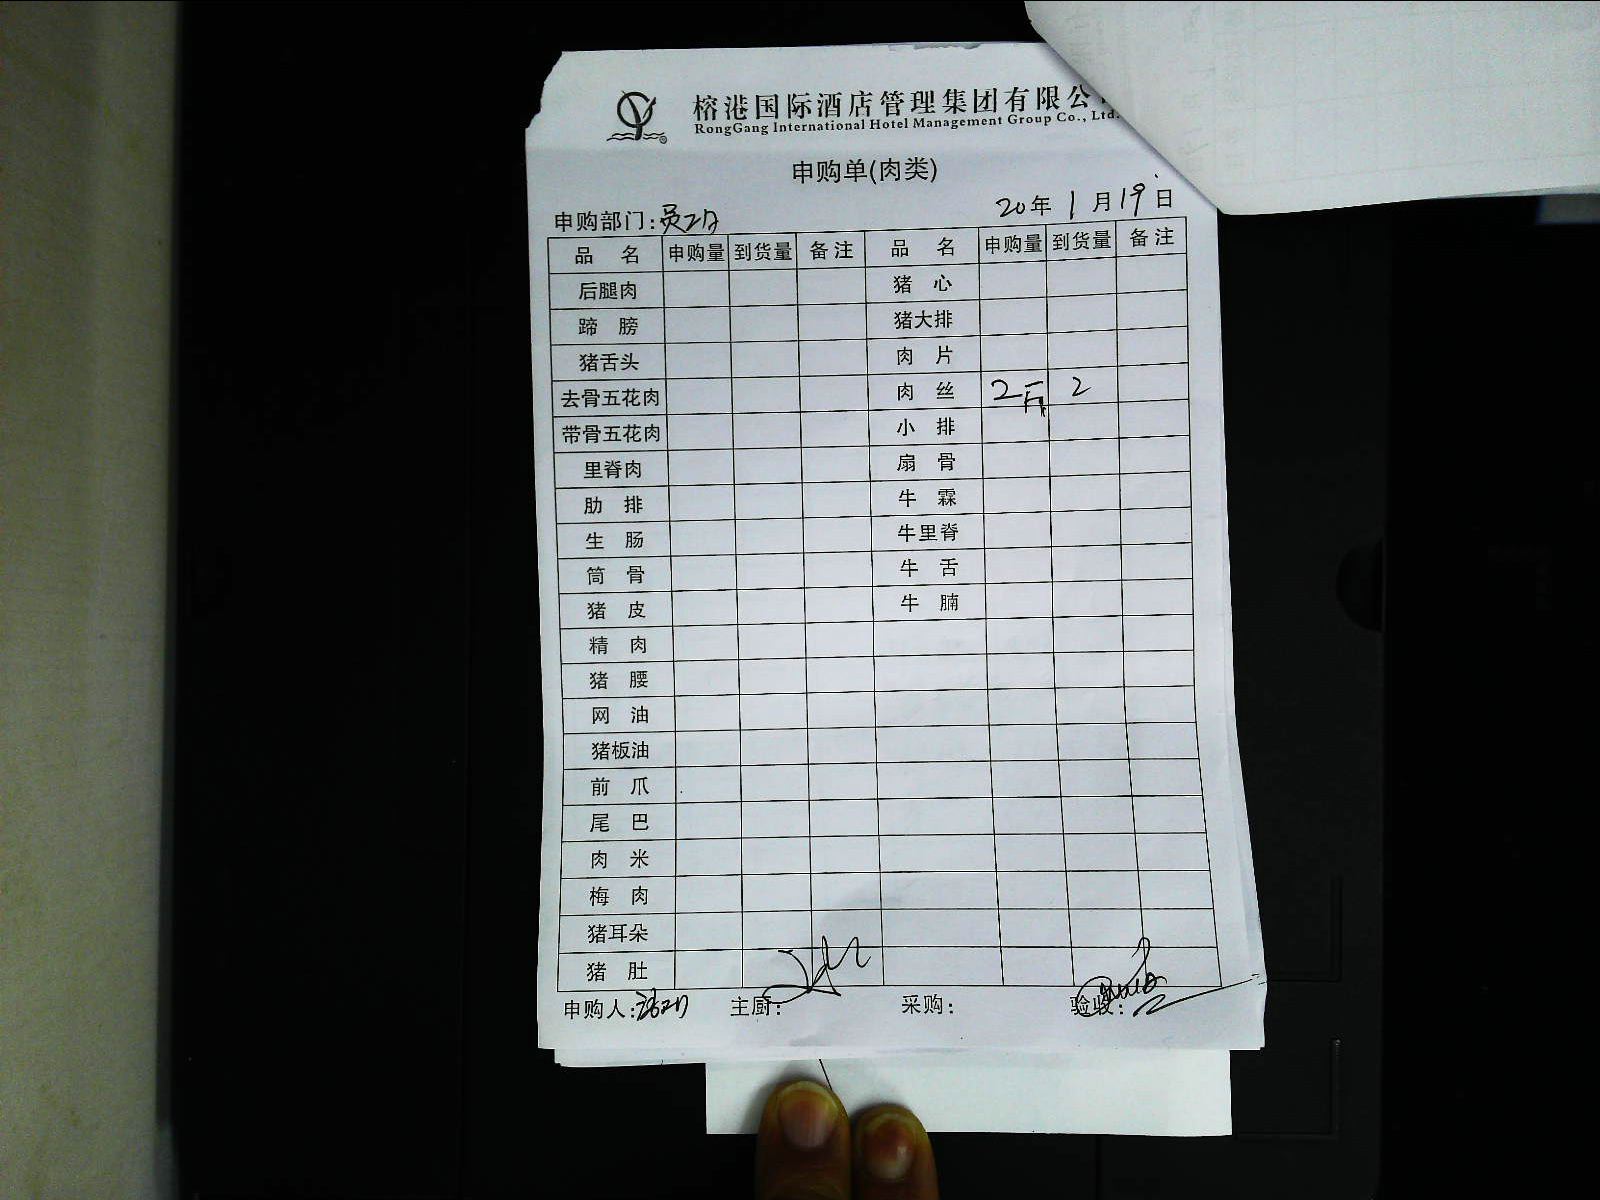 榕港国际酒店管理集团有限公
RongGang International Hotel Management Group Co., Ltd.
申购单(肉类)
20年1月19日
申购部门:员工
品名 申购量 到货量 备注 品名 申购量 到货量 备注
后腿肉 猪心
蹄膀 猪大排
猪舌头 肉片
去骨五花肉 肉丝 2斤 2
带骨五花肉 小排
里脊肉 扇骨
肋排 牛霖
生肠 牛里脊
筒骨 牛舌
猪皮 牛腩
精肉
猪腰
网油
猪板油
前爪
尾巴
肉米
梅肉
猪耳朵
猪肚
申购人: 主厨: 采购: 验收: